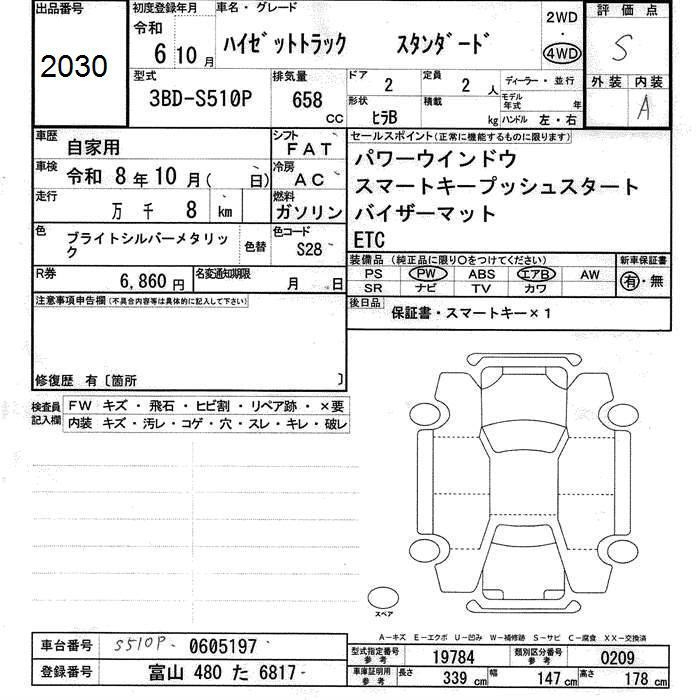 出品番号
2030
初度登録年月
令和
6 10 月
車名・グレード
ハイゼットトラック スタンダード
2WD
・
4WD
評価点
S
外装 内装
A
型式
3BD-S510P
排気量
658
CC
ドア
2
定員
2 人
ディーラー・並行
形状
ヒラB
積載
kg
モデル年式 年
ハンドル 左・右
車歴
自家用
シフト
FAT
車検
令和 8 年 10 月( 日)
冷房
AC
走行
万 千 8 km
燃料
ガソリン
色
ブライトシルバーメタリック
色替
色コード
S28
R券
6,860 円
名変通知期限
月 日
セールスポイント(正常に機能するものに限ります)
パワーウインドウ
スマートキープッシュスタート
バイザーマット
ETC
装備品 (純正品に限り○をつけてください)
新車保証書
PS PW ABS エアB AW
SR ナビ TV カワ
有・無
後日品
保証書・スマートキー×1
注意事項申告欄(不具合内容等は具体的に記入して下さい)
修復歴 有〔箇所 〕
検査員記入欄
FW キズ・飛石・ヒビ割・リペア跡・×要
内装 キズ・汚レ・コゲ・穴・スレ・キレ・破レ
スペア
A-キズ E-エクボ U-凹み W-補修跡 S-サビ C-腐食 XX-交換済
車台番号
S510P- 0605197
登録番号
富山 480 た 6817
型式指定番号
参考
19784
類別区分番号
参考
0209
車庫証明用
参考
長さ
339 cm
幅
147 cm
高さ
178 cm